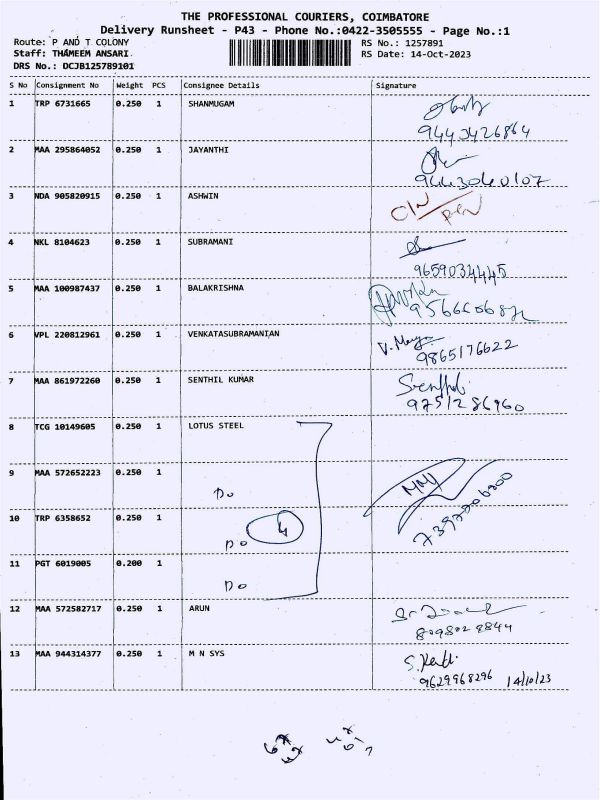 THE PROFESSIONAL COURIERS, COIMBATORE
Delivery Runsheet - P43 - Phone No.:0422-3505555 - Page No.:1
Route: P AND T COLONY RS No.: 1257891
Staff: THAMEEM ANSARI RS Date: 14-Oct-2023
DRS No.: DCJB125789101
S No Consignment No Weight PCS Consignee Details Signature
1 TRP 6731665 0.250 1 SHANMUGAM
9443426864
2 MAA 295864052 0.250 1 JAYANTHI
9443040107
3 NDA 905820915 0.250 1 ASHWIN
4 NKL 8104623 0.250 1 SUBRAMANI
9659034445
5 MAA 100987437 0.250 1 BALAKRISHNA
6 VPL 220812961 0.250 1 VENKATASUBRAMANIAN
9865176622
7 MAA 861972260 0.250 1 SENTHIL KUMAR
9751286960
8 TCG 10149605 0.250 1 LOTUS STEEL
9 MAA 572652223 0.250 1
Do
10 TRP 6358652 0.250 1
4
Do
11 PGT 6019005 0.200 1
Do
12 MAA 572582717 0.250 1 ARUN
8098029844
13 MAA 944314377 0.250 1 M N SYS
9629968296 14/10/23